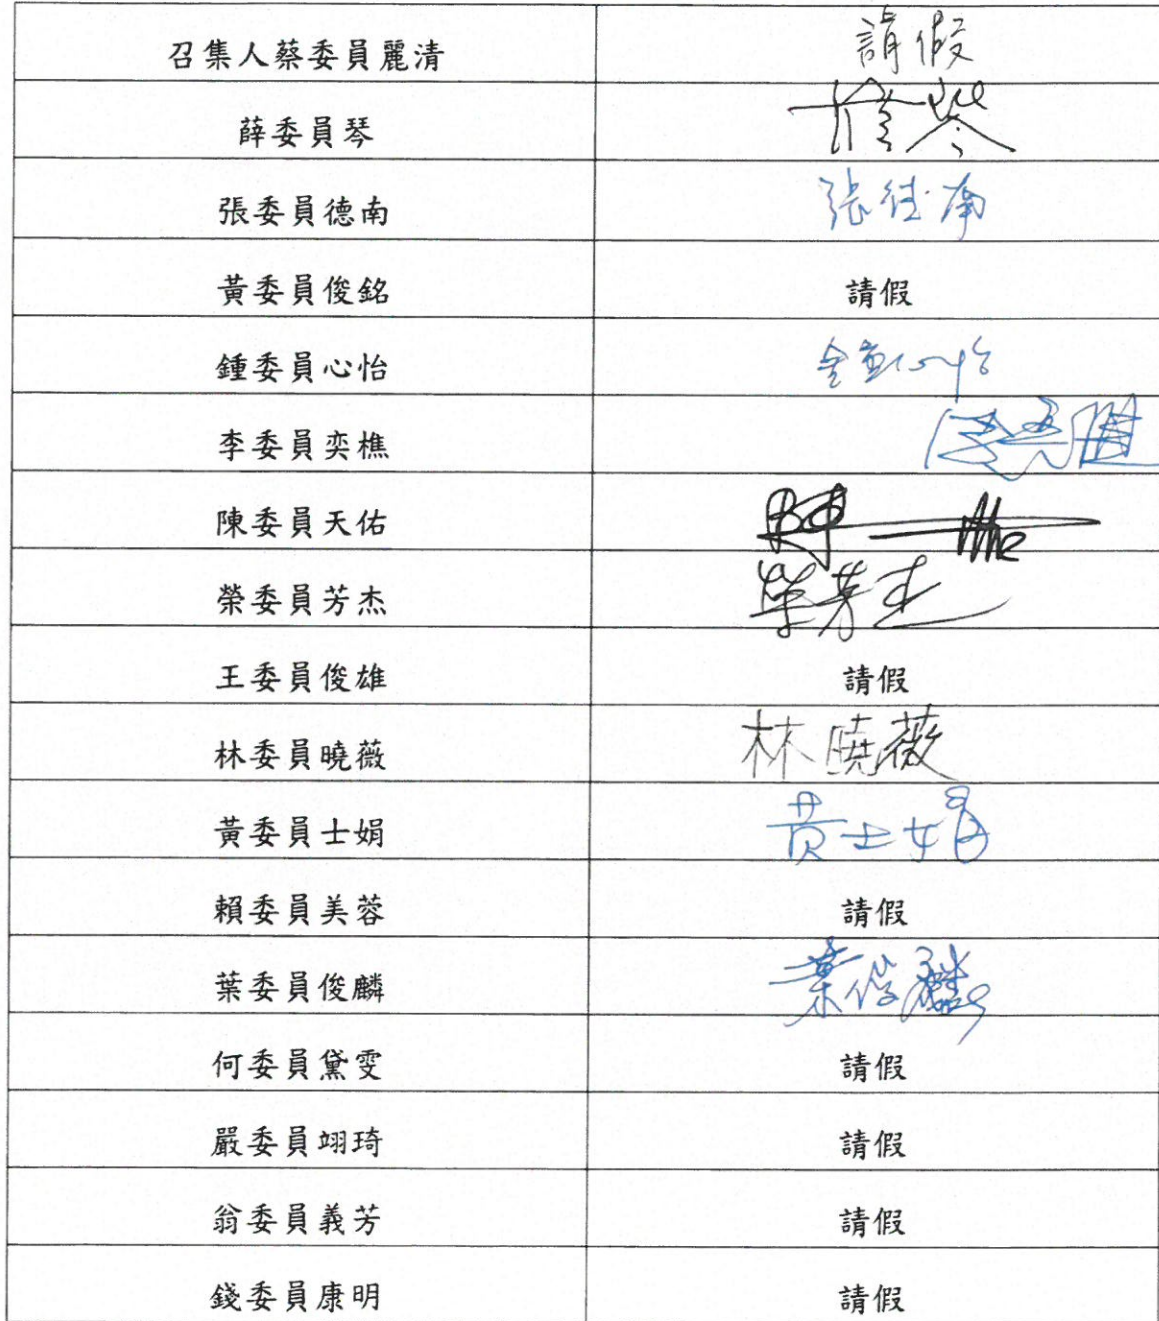 召集人蔡委員麗清 請假
薛委員琴
張委員德南 張德南
黃委員俊銘 請假
鍾委員心怡 鍾心怡
李委員奕樵
陳委員天佑
榮委員芳杰 榮芳杰
王委員俊雄 請假
林委員曉薇 林曉薇
黃委員士娟 黃士娟
賴委員美蓉 請假
葉委員俊麟 葉俊麟
何委員黛雯 請假
嚴委員翊琦 請假
翁委員義芳 請假
錢委員康明 請假